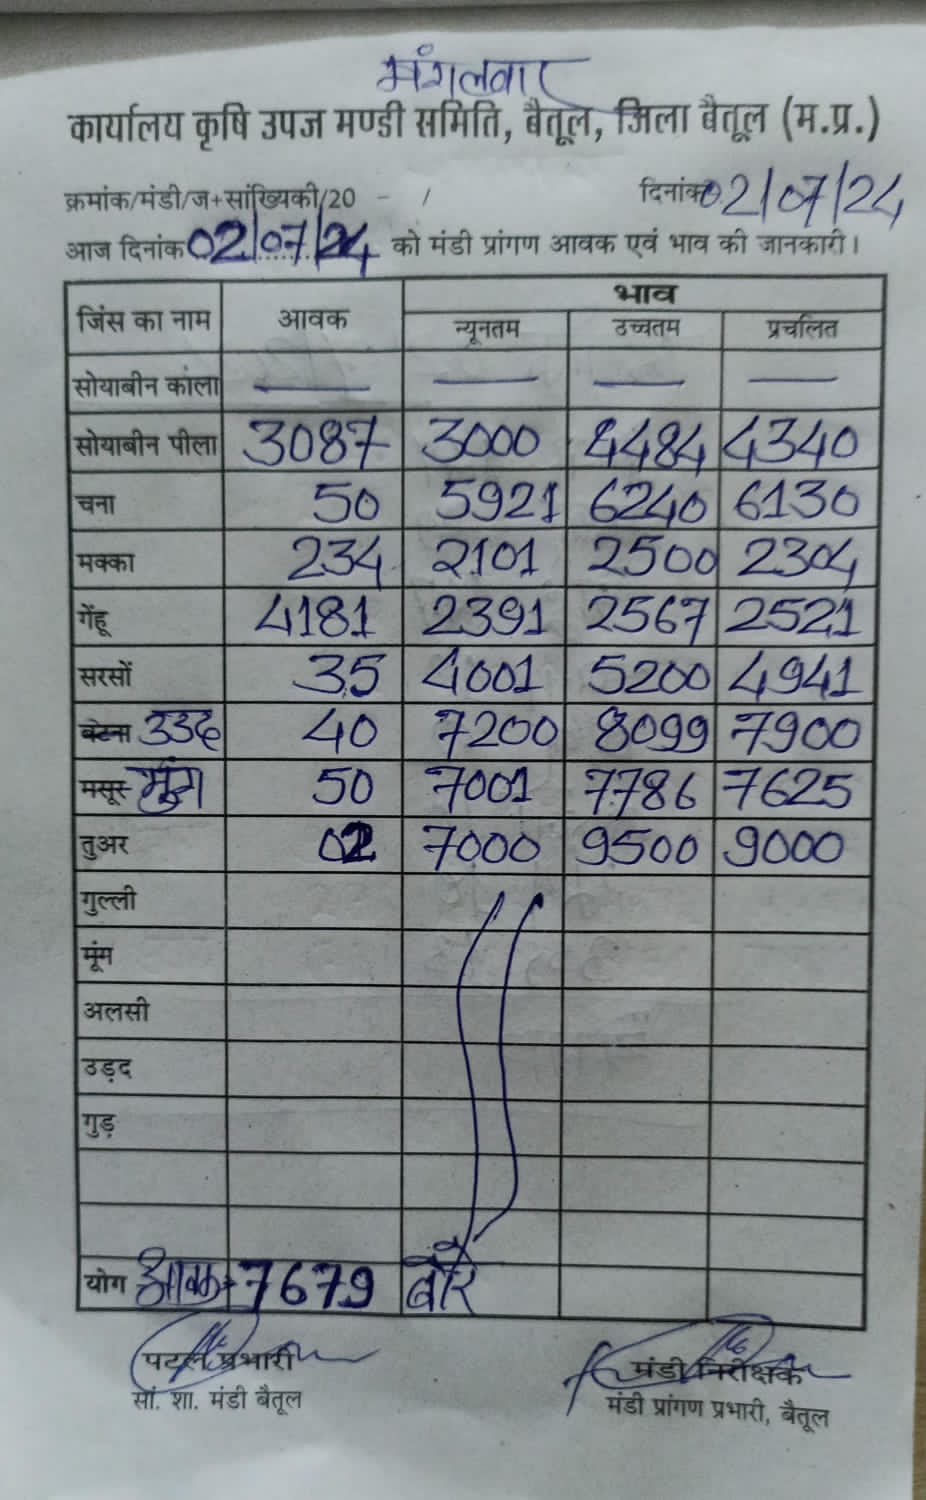 मंगलवार
कार्यालय कृषि उपज मण्डी समिति, बैतूल, जिला बैतूल (म.प्र.)
क्रमांक/मंडी/ज+सांख्यिकी/20 - / दिनांक 02/07/24
आज दिनांक 02/07/24 को मंडी प्रांगण आवक एवं भाव की जानकारी।
जिंस का नाम आवक भाव
न्यूनतम उच्चतम प्रचलित
सोयाबीन काला — — — —
सोयाबीन पीला 3087 3000 4484 4340
चना 50 5921 6240 6130
मक्का 234 2101 2500 2304
गेंहू 4181 2391 2567 2521
सरसों 35 4001 5200 4941
बटना उडद 40 7200 8099 7900
मसूर मूंग 50 7001 7786 7625
तुअर 02 7000 9500 9000
गुल्ली
मूंग
अलसी
उड़द
गुड़
योग आवक 7679 बोरे
पटल प्रभारी मंडी निरीक्षक
सां. शा. मंडी बैतूल मंडी प्रांगण प्रभारी, बैतूल